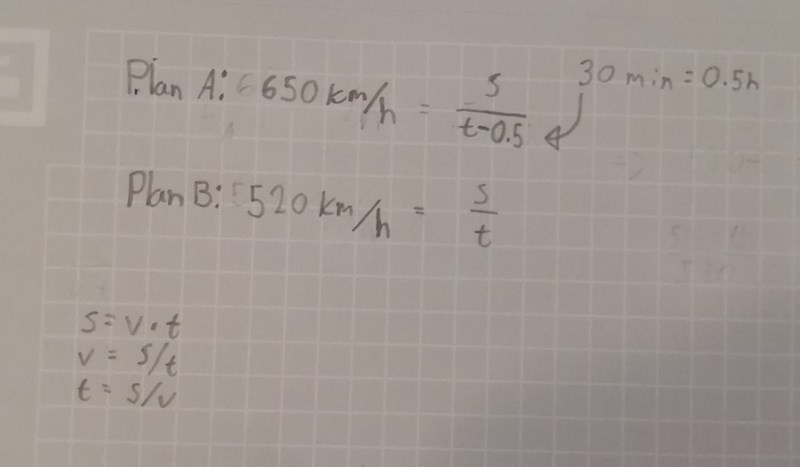 Plan A: 650 km/h = s/(t-0.5) 30 min = 0.5h
Plan B: 520 km/h = s/t
s = v · t
v = s/t
t = s/v